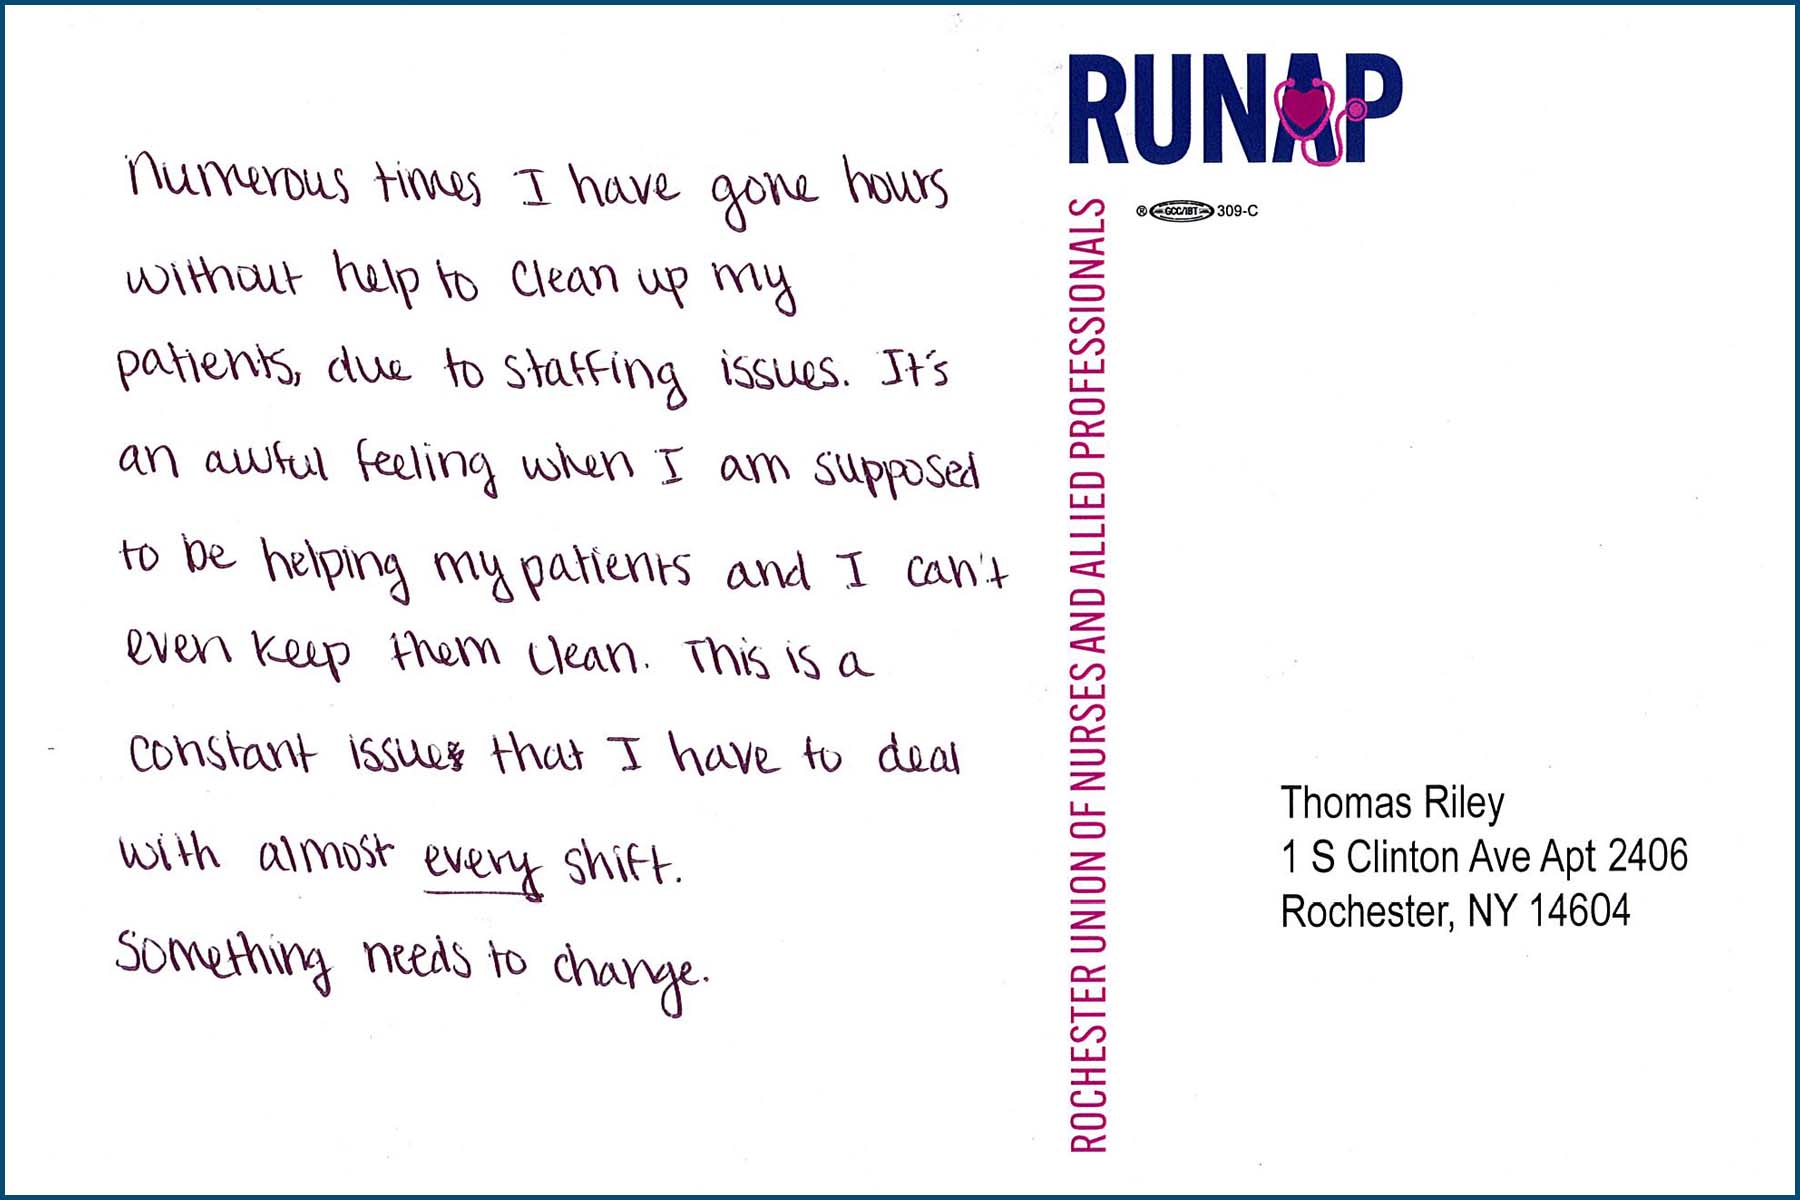 Numerous times I have gone hours
without help to clean up my
patients, due to staffing issues. It's
an awful feeling when I am supposed
to be helping my patients and I can't
even keep them clean. This is a
constant issue that I have to deal
with almost every shift.
Something needs to change.
RUNAP
® GCC/IBT 309-C
ROCHESTER UNION OF NURSES AND ALLIED PROFESSIONALS
Thomas Riley
1 S Clinton Ave Apt 2406
Rochester, NY 14604